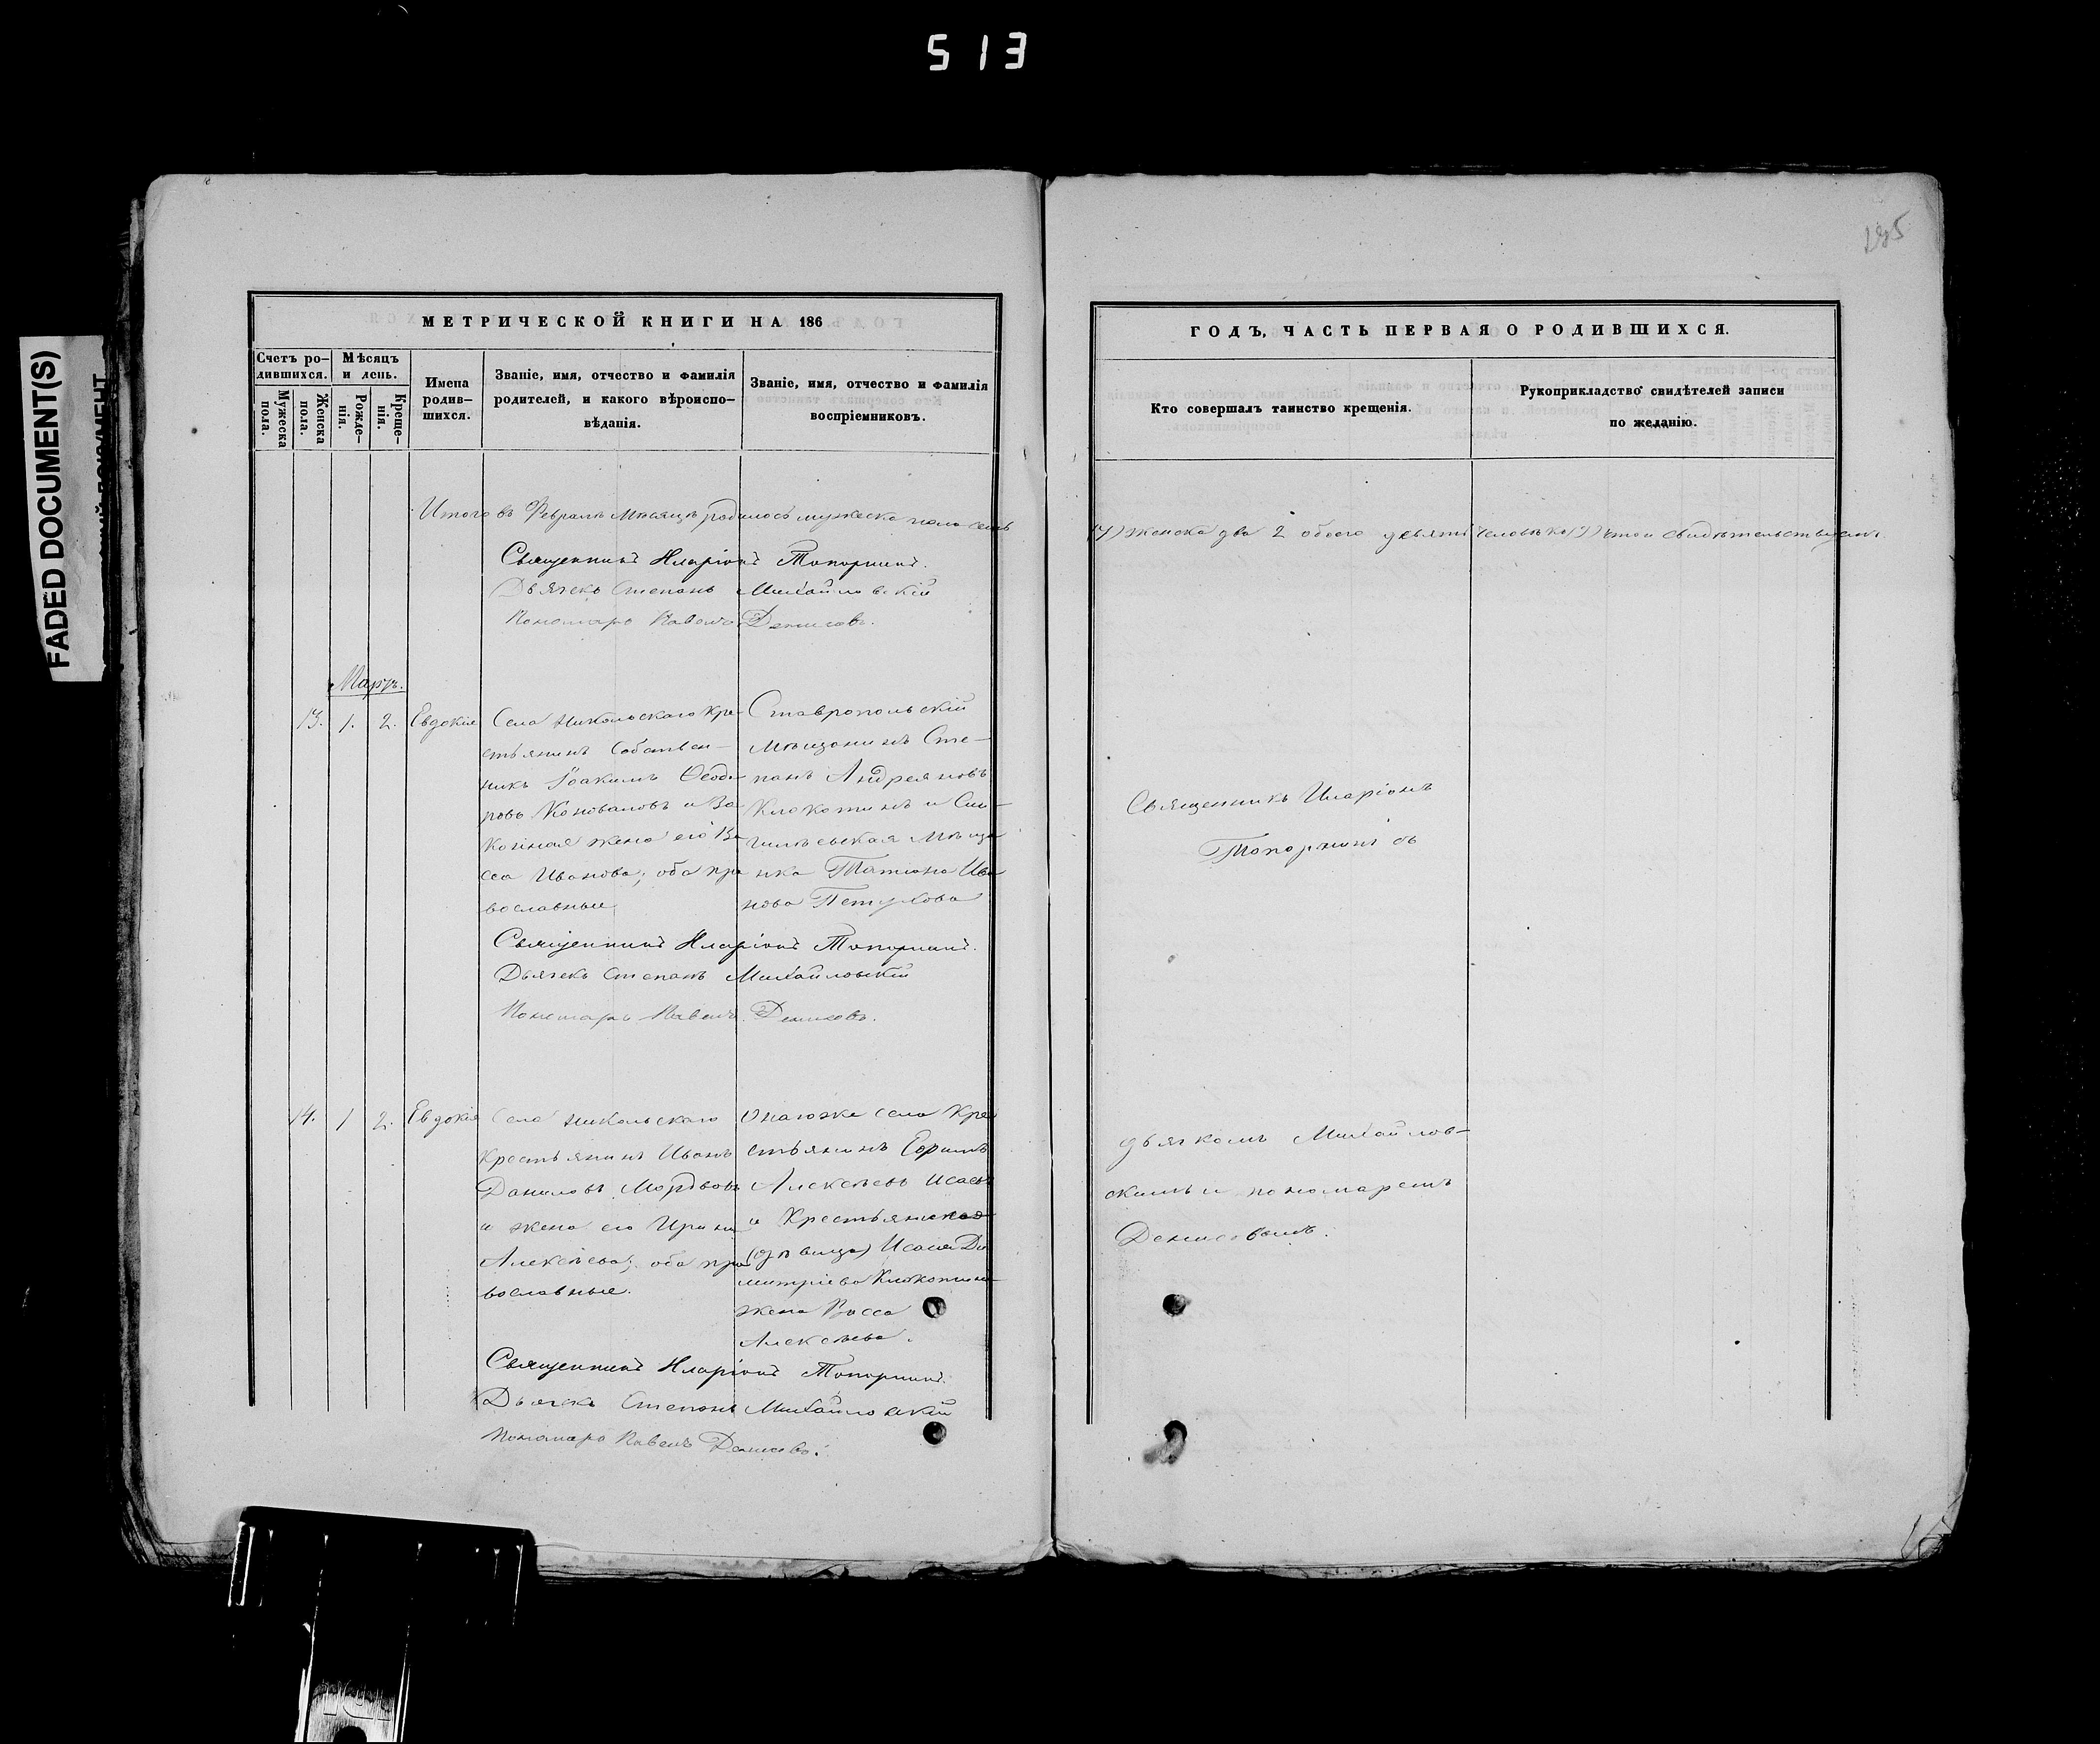 513
FADED DOCUMENT(S)
185
МЕТРИЧЕСКОЙ КНИГИ НА 186
Счетъ ро-
дившихся.
Мужеска
пола.
Женска
пола.
Мѣсяцъ
и день.
Рожде-
нія.
Креще-
нія.
Имена
родив-
шихся.
Званіе, имя, отчество и фамилія
родителей, и какого вѣроиспо-
вѣданія.
Званіе, имя, отчество и фамилія
воспріемниковъ.
ГОДЪ, ЧАСТЬ ПЕРВАЯ О РОДИВШИХСЯ.
Кто совершалъ таинство крещенія.
Рукоприкладство свидѣтелей записи
по желанію.
Итого въ Февралѣ мѣсяцѣ родилось мужеска пола семь
(7) женска два 2 обоего девять человѣкъ (9) въ томъ свидѣтельствуемъ
Священникъ Иларіонъ Топорнинъ.
Дьячекъ Степанъ Михайловскій
Пономарь Павелъ Денисовъ.
Мартъ.
13. 1. 2. Евдокія
Села Никольскаго кре-
стьянинъ собствен-
никъ Іоакимъ Ѳеодо-
ровъ Коноваловъ и за
конная жена его Ва
сса Иванова; оба пра
вославные
Ставропольскій
мѣщанинъ Сте-
панъ Андреяновъ
Клокотинъ и Сим-
мѣща
нка Татіана Ива
нова Петухова
Священникъ Иларіонъ
Топорнинъ съ
Священникъ Иларіонъ Топорнинъ.
Дьячекъ Степанъ Михайловскій
Пономарь Павелъ Денисовъ.
14. 1 2. Евдокія
Села Никольскаго
крестьянинъ Иванъ
Даниловъ Мордвовъ
и жена его Ирина
Алексѣева; оба пра
вославные.
Онагоже села кре
стьянинъ Ефимъ
Алексѣевъ Исаевъ
и крестьянская
(дѣвица) Исаія Ди
митріева Клокотина
жена Васса
Алексѣева.
дьячкомъ Михайлов-
скимъ и пономаремъ
Денисовымъ.
Священникъ Иларіонъ Топорнинъ.
Дьячекъ Степанъ Михайловскій
Пономарь Павелъ Денисовъ.